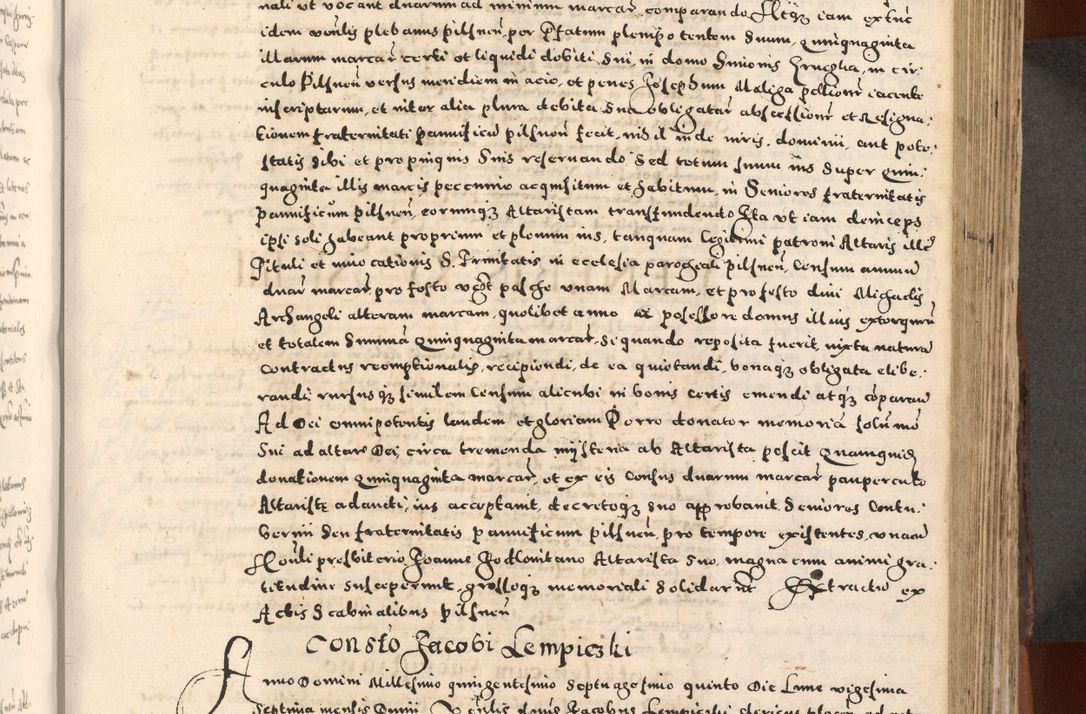 nali ut vocant duarum ad minimum marcar comparando Atq iam ex tunc
idem venlis plebanus Pilsnen per Pfatum plenipotentem Suum, quinquaginta
illarum marcar certi et liquidi debiti Sui, in domo Simonis in cir:
culo Pilsnen versus meridiem in acie, et penes Josephum Maliga pellionem iacente
inscriptarum, et inter alia plura debita Sua obligatar abscessionem et Resigna:
tionem fraternitati pannificum pilsnen fecit, nihil inde iuris, dominii, aut pote:
statis sibi et propinquis Suis reservando Sed totum suum ius super quin:
quaginta illis marcis pecunio acquisitum et habitum, in Seniores fraternitatis
pannificum Pilsnen, eorumq Altaristam transfundendo Ita ut iam deinceps
ipsi soli habeant proprium et plenum ius, tanquam legitimi patroni Altaris illi
Tituli et invocationis S. Trinitatis in ecclesia parocheali Pilsnen, Censum annuu
duar marcar pro festo pasche unam Marcam, et pro festo divi Michaelis
Archangeli alteram marcam, quolibet anno a posessore domus illius extorquen
et totalem Summa Quinquaginta marcar, si quando reposita fuerit, iuxta natura
Contractus reemptionalis, recipiendi, de ea quietandi, bonaq obligata elibe:
randi rursusq similem Censum alicubi in bonis certis emendi atq coparan
Ad Dei omnipotentis laudem et gloriam Porro donator memoria solumo
Sui ad altare Dei, circa tremenda mysteria ab Altarista poscit Quamquid
donationem Quinquaginta marcar, et ex eis Census duarum marcar pauperculo
Altariste adaucti, ius acceptant, decretoq suo approbant. Seniores Contu:
bernii Seu fraternitatis pannificum pilsnen, pro tempore existentes, vnacu
Honli presbitero Joanne Altarista Suo, magna cum animi gra:
titudine susceperunt, grossoq memoriali Solidarut Extractu ex
Actis Scabinalibus Pilsnen
Consto Jacobi Lempiczki
Anno Domini Millesimo quingentesimo Septuagesimo quinto Die Lune vigesima
Septima mensis Junii Venlis dnus Jacobus Lempiczki clericus